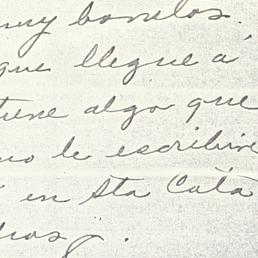 muy bonitos.
que llegue a
tiene algo que
no le escribire
en Sta Cata